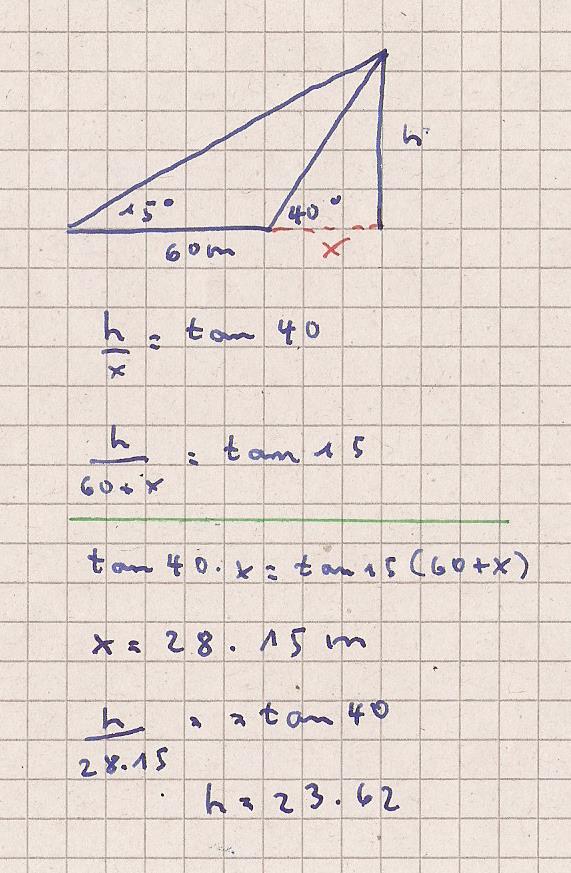 h
15°
40°
60m
x
h/x = tan 40
h/(60+x) = tan 15
tan 40 · x = tan 15 (60+x)
x = 28.15 m
h/28.15 = = tan 40
h = 23.62